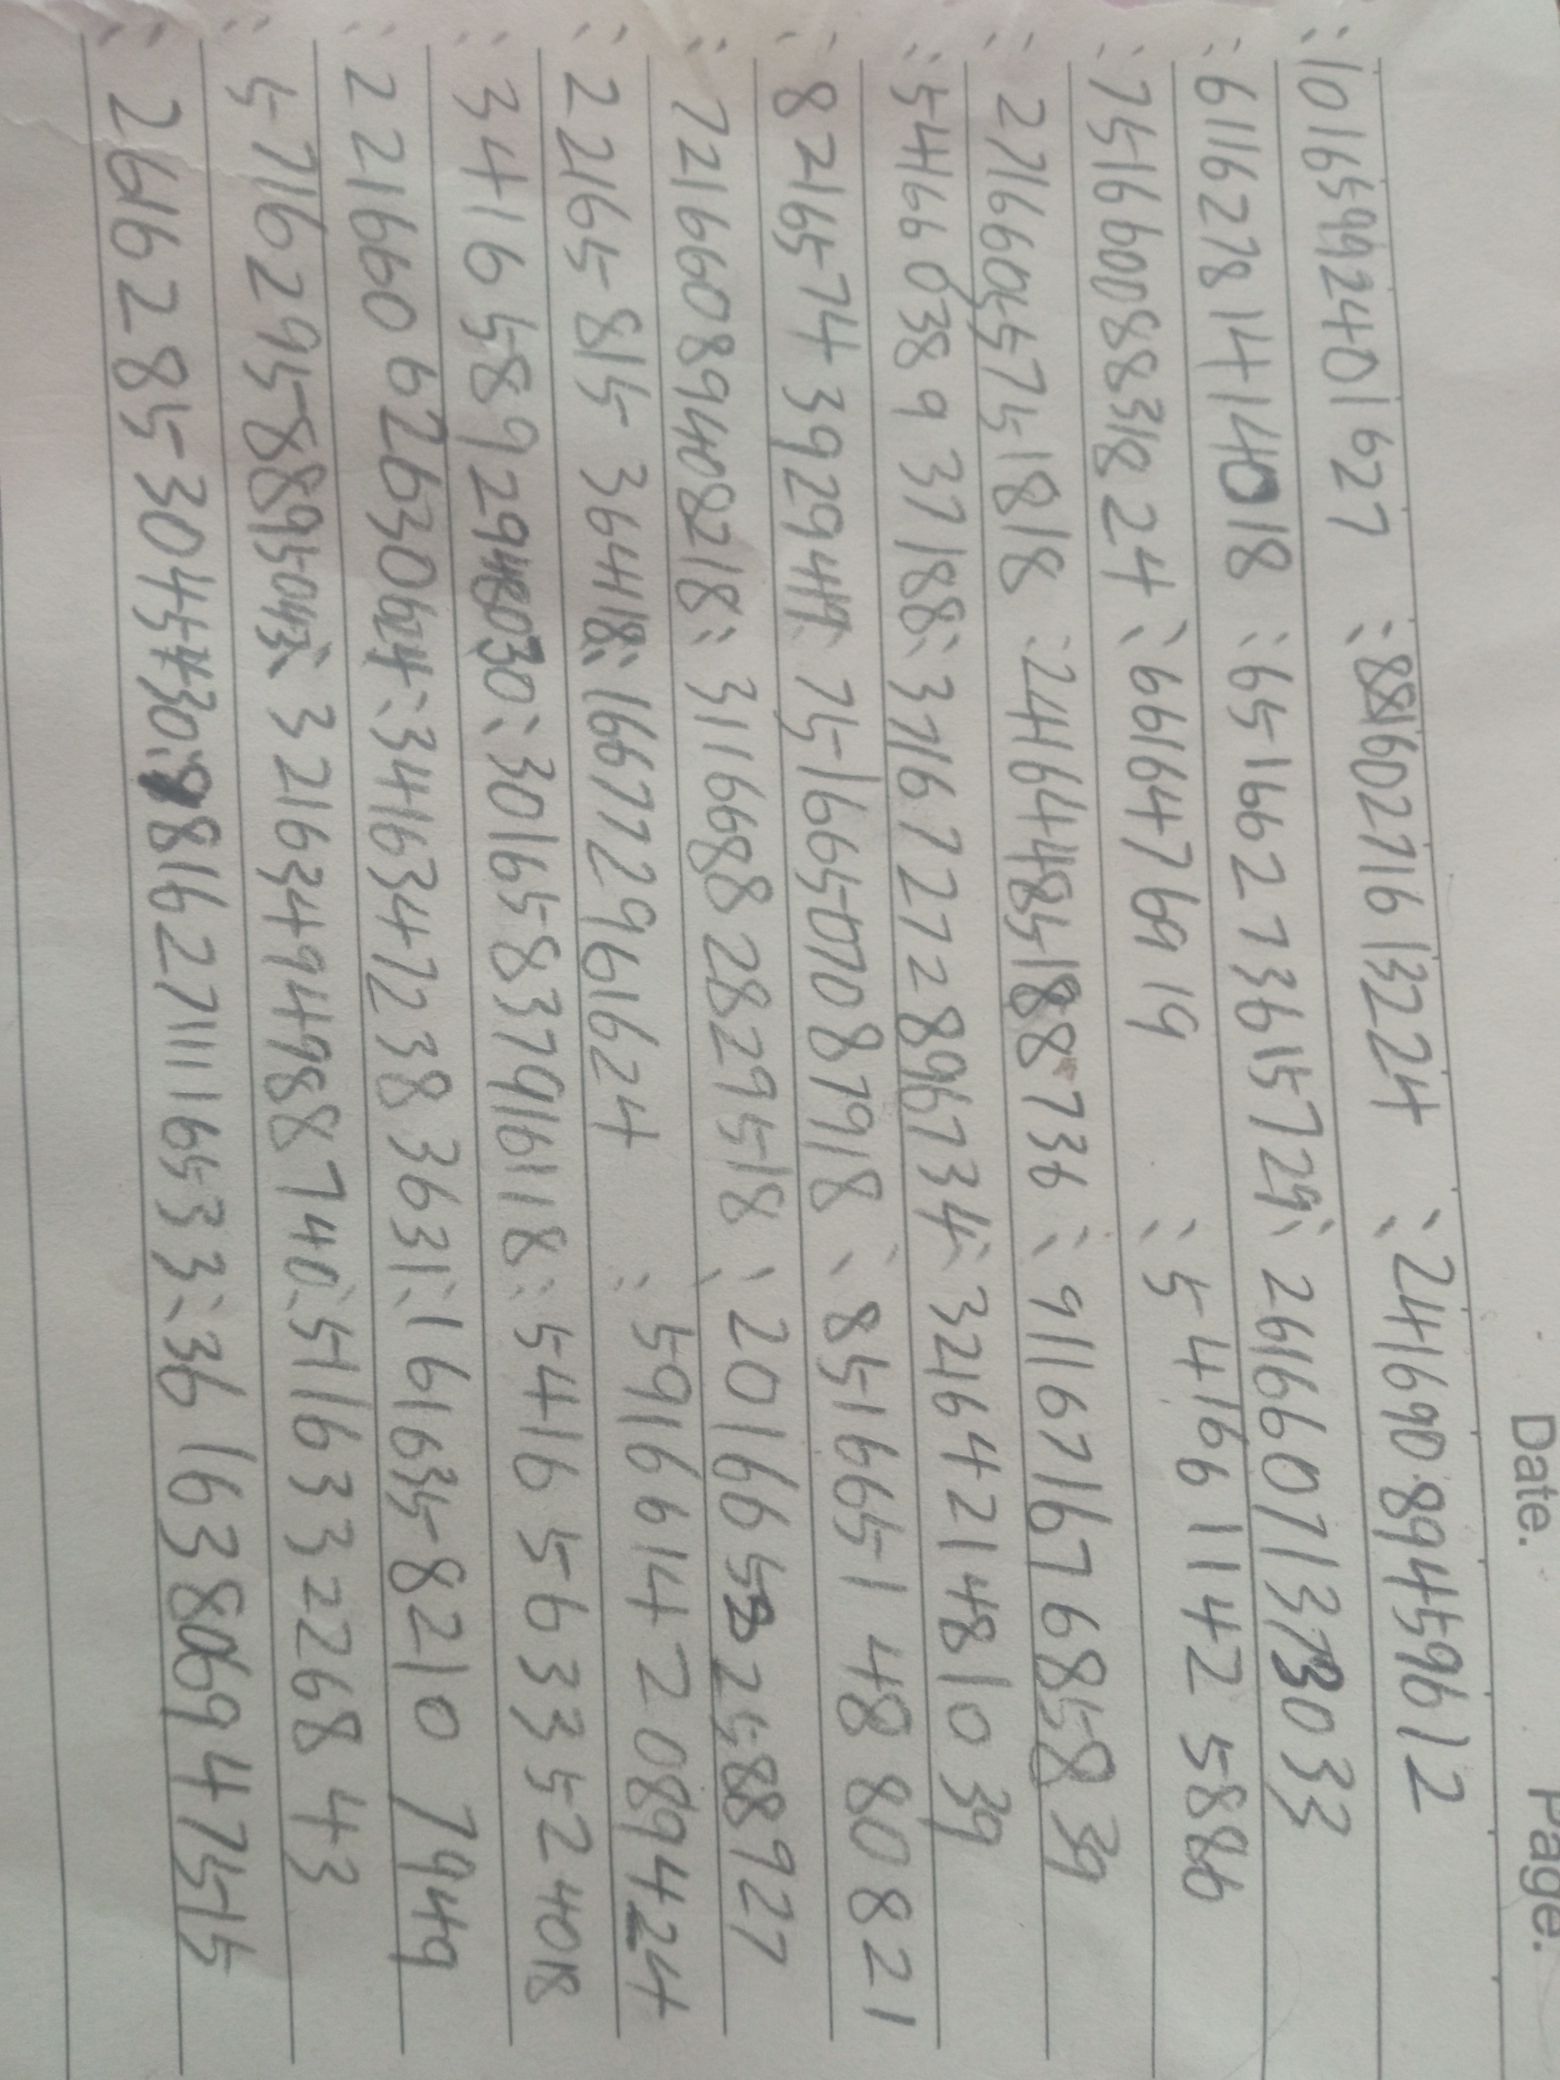 Date. Page.
:1016599240 1627 :88160271613224 :241690894596 12
:6116278141 4018 :65166273615729: 26166071373033
:75166008831824 :6616476919 :54166114 25886
:27166057518 18 :24164418518 8736 :91167167685839
:541660389 37188: 3716727289 6734: 32164214810 39
:8216574392941 9: 75166507087918 :85166514880821
:72166089408218: 311668828295 18 :20166525 88927
:2216581536418: 1667729 61624 :59166142089424
:34165892948030: 30165837916118: 54165633524018
:221660626306 24: 34163472383631: 16163582107949
:57162958895043: 32163494988740: 51163322 6843
:2616285304 5430: 98162711116533: 36163806947515